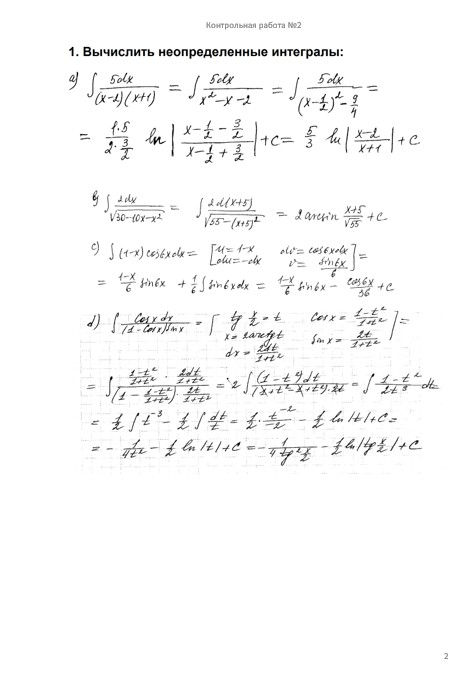 Контрольная работа №2
1. Вычислить неопределенные интегралы:
a) ∫ 5dx/((x-2)(x+1)) = ∫ 5dx/(x²-x-2) = ∫ 5dx/((x-1/2)²-9/4) =
= (1·5)/(2·3/2) ln |(x-1/2-3/2)/(x-1/2+3/2)| + c = 5/3 ln |(x-2)/(x+1)| + c
b) ∫ 2dx/√(30-10x-x²) = ∫ 2d(x+5)/√(55-(x+5)²) = 2 arcsin (x+5)/√55 + c
c) ∫ (1-x) cos6x dx = [u = 1-x dv = cos6xdx du = -dx v = sin6x/6] =
= (1-x)/6 sin6x + 1/6 ∫ sin6xdx = (1-x)/6 sin6x - cos6x/36 + c
d) ∫ cosx dx/((1-cosx)sinx) = [tg x/2 = t cosx = (1-t²)/(1+t²) x = 2arctgt sinx = 2t/(1+t²) dx = 2dt/(1+t²)] =
= ∫ ((1-t²)/(1+t²) · 2dt/(1+t²))/((1-(1-t²)/(1+t²)) · 2t/(1+t²)) = 2 ∫ (1-t²)dt/((1+t²-1+t²)·2t) = ∫ (1-t²)/(2t³) dt
= 1/2 ∫ t⁻³ - 1/2 ∫ dt/t = 1/2 · t⁻²/-2 - 1/2 ln|t| + c =
= - 1/(4t²) - 1/2 ln|t| + c = - 1/(4tg² x/2) - 1/2 ln|tg x/2| + c
2